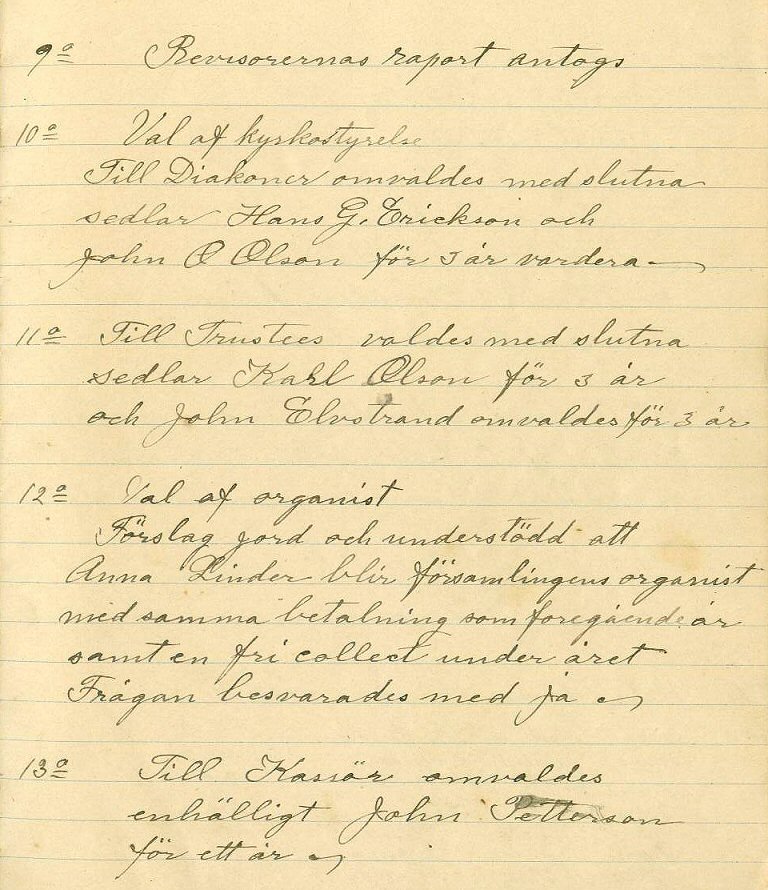 9<u>o</u> Revisorernas raport antogs
10<u>o</u> Val af kyrkostyrelse
Till Diakoner omvaldes med slutna
sedlar Hans G. Erickson och
John O Olson för 3 år vardera
11<u>o</u> Till Trustees valdes med slutna
sedlar Karl Olson för 3 år
och John Elvstrand omvaldes för 3 år
12<u>o</u> Val af organist
Förslag jord och understödd att
Anna Linder blir församlingens organist
med samma betalning som foregående år
samt en fri collect under året
Frågan besvarades med ja
13<u>o</u> Till Kassör omvaldes
enhälligt John Petterson
för ett år